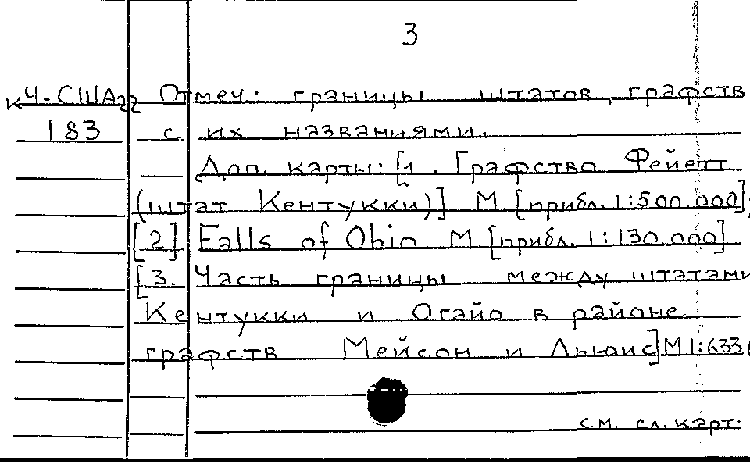 3
К 4-США22 Отмеч: границы штатов, графств
183 с их названиями.
Доп. карты: [1. Графство Фейетт
(штат Кентукки)] М [прибл. 1:500.000];
[2] Falls of Ohio М [прибл. 1:130.000]
[3. Часть границы между штатами
Кентукки и Огайо в районе
графств Мейсон и Льюис] М 1:633
см. сл. карт.